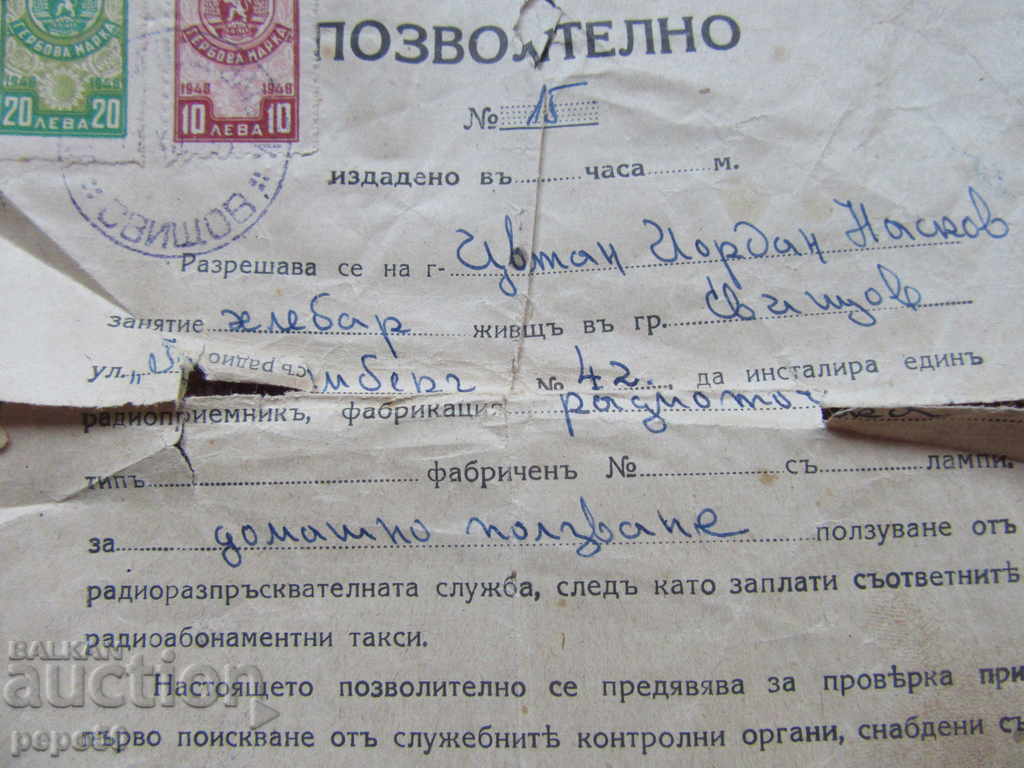 ГЕРБОВА МАРКА ГЕРБОВА МАРКА
1948 1948 1948 1948
20 ЛЕВА 20 10 ЛЕВА 10
СВИЩОВ
ПОЗВОЛИТЕЛНО
№ 15
издадено въ часа м.
Разрешава се на г- Цветан Иордан Насков
занятие хлебар живущъ въ гр. Свищовъ
ул. № 42, да инсталира единъ
съ радио
радиоприемникъ, фабрикация радиоточка
типъ фабриченъ № съ лампи.
за домашно ползване ползуване отъ
радиоразпръсквателната служба, следъ като заплати съответнитѣ
радиоабонаментни такси.
Настоящето позволително се предявява за провѣрка при
първо поискване отъ служебнитѣ контролни органи, снабдени съ
BALKAN
auction